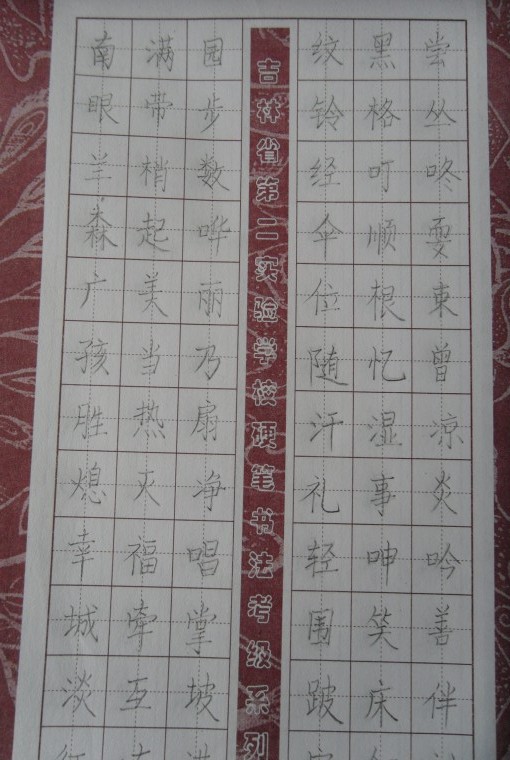 南满园
眼带步
羊梢数
森起哗
广美丽
孩当乃
胜热扇
熄灭海
幸福唱
城牵掌
淡互坡
吉林省第二实验学校硬笔书法考级系列
纹黑尝
铃格丛
经叮咚
伞顺耍
位根束
随忆曾
汗湿凉
礼事炎
轻呻吟
围笑善
跛床伴